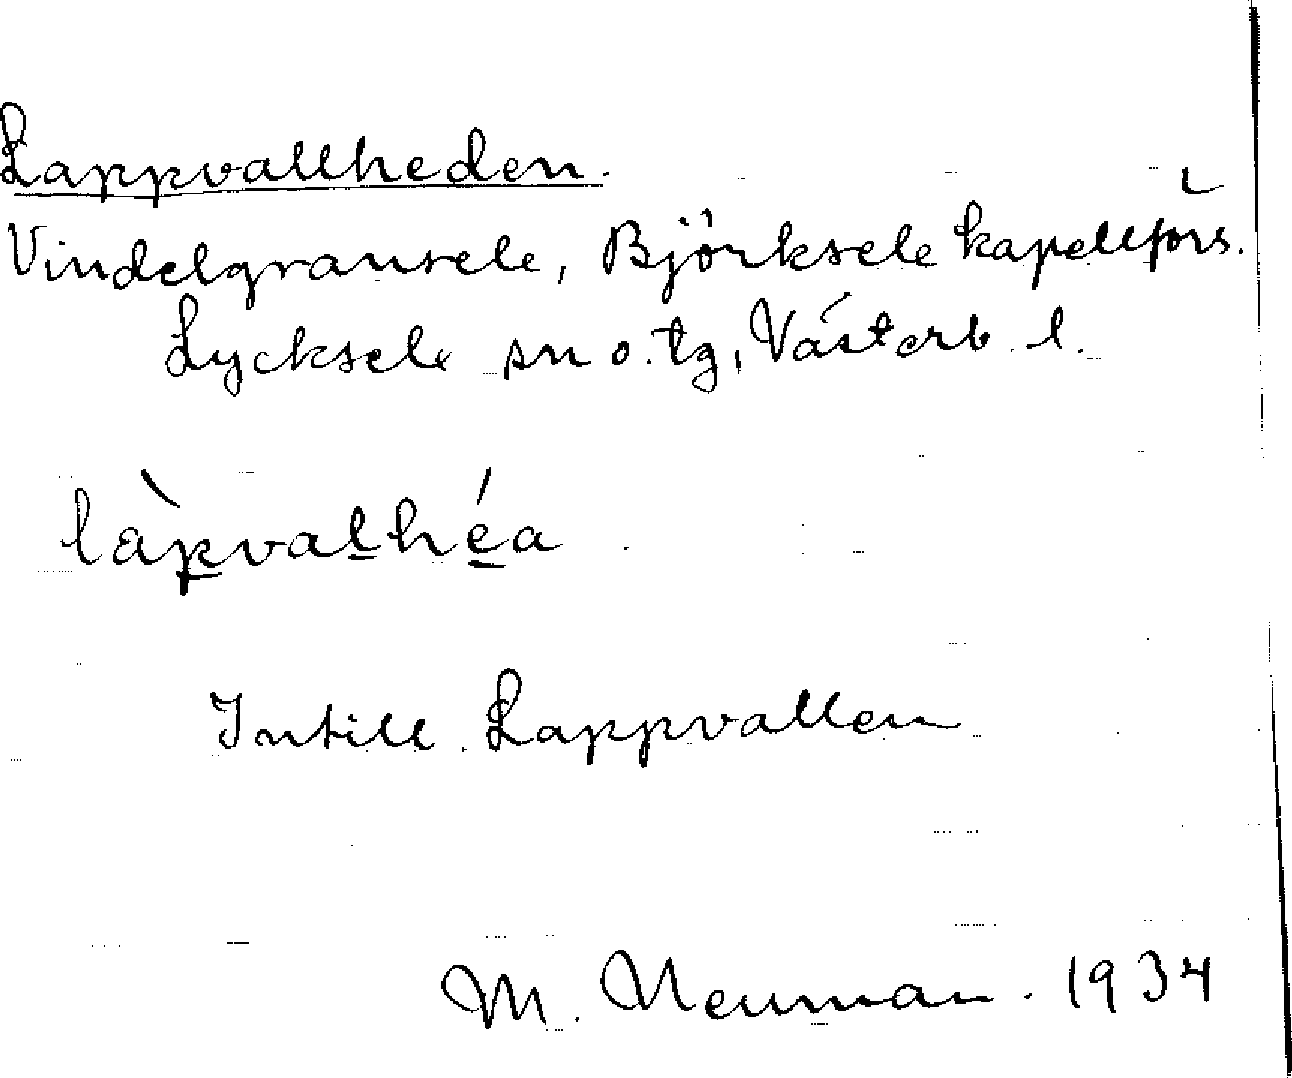 Lappvallheden.
Vindelgransele, Björksele kapellförs.
Lycksele sn o. tg, Västerb. l.
làp̲val̲hé̲a
Intill Lappvallen
M. Neuman. 1934